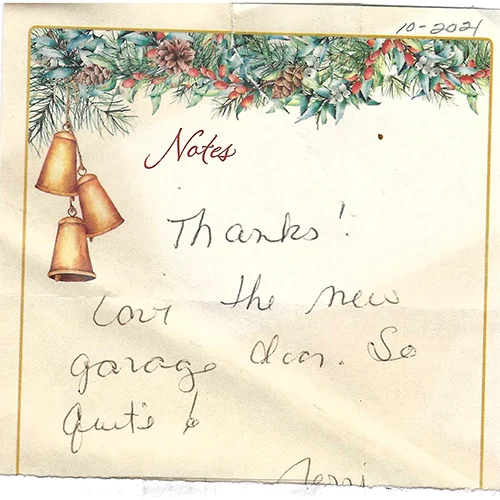 10-2021
Notes
Thanks!
Love the new
garage door. So
quite!